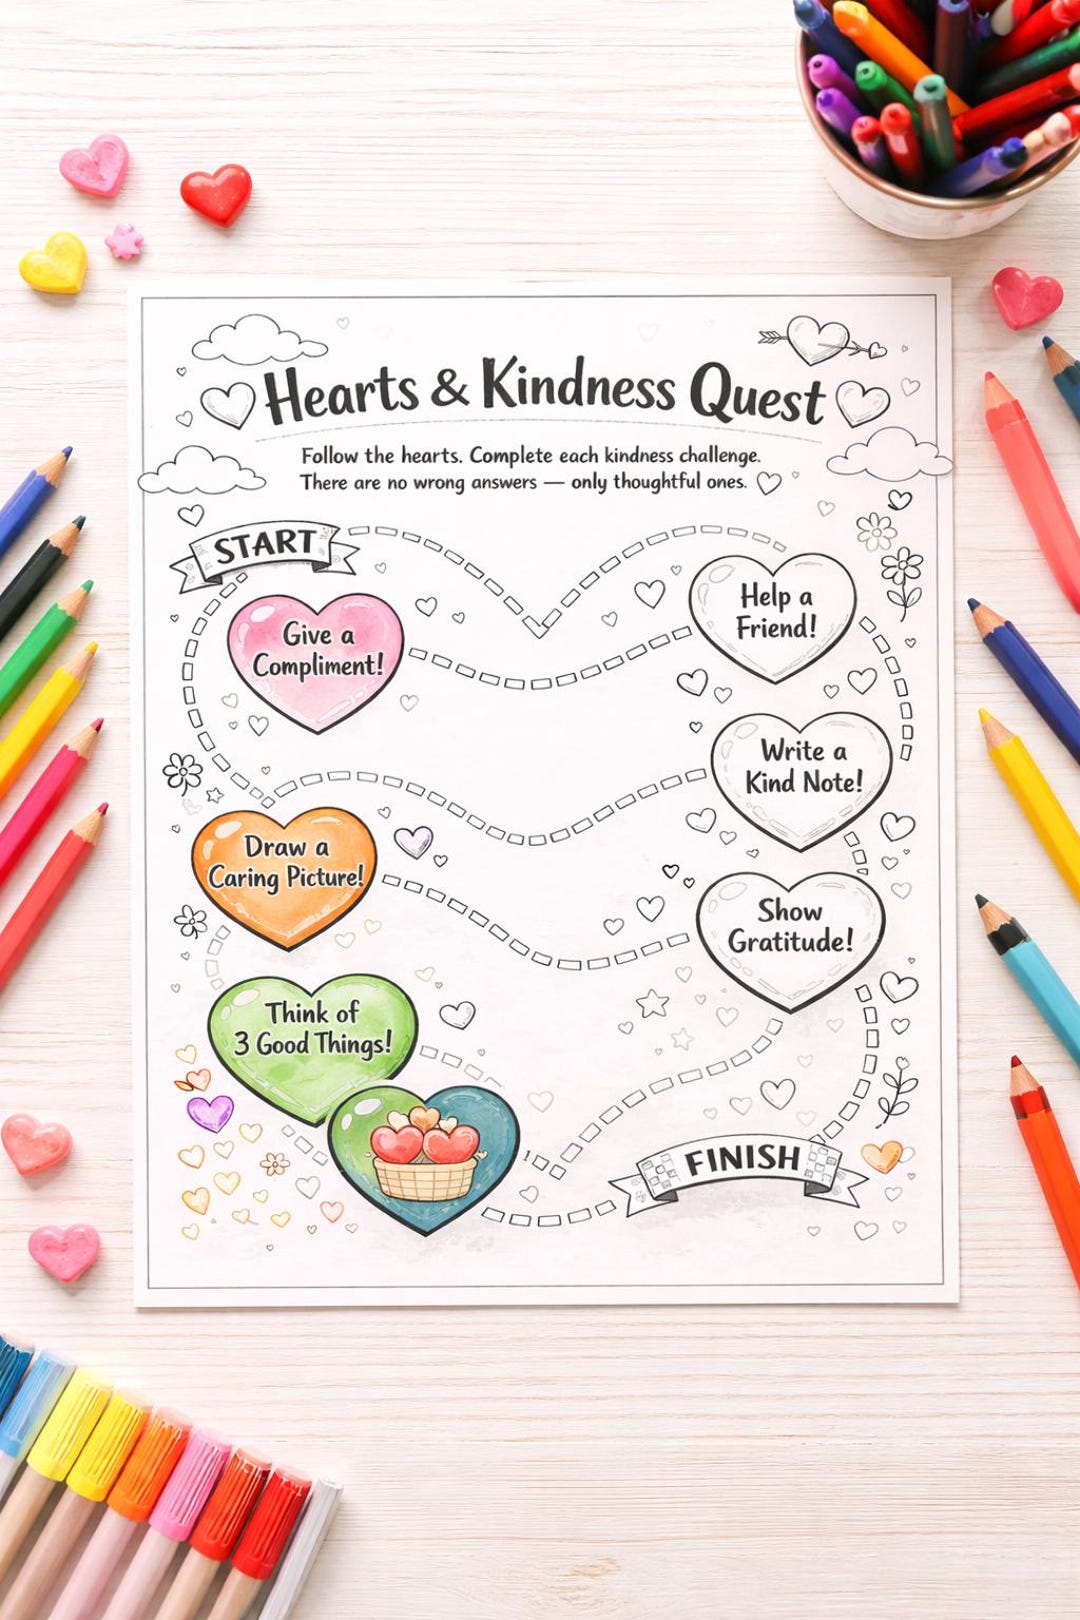 Hearts & Kindness Quest
Follow the hearts. Complete each kindness challenge.
There are no wrong answers — only thoughtful ones.
START
Give a
Compliment!
Help a
Friend!
Write a
Kind Note!
Draw a
Caring Picture!
Show
Gratitude!
Think of
3 Good Things!
FINISH